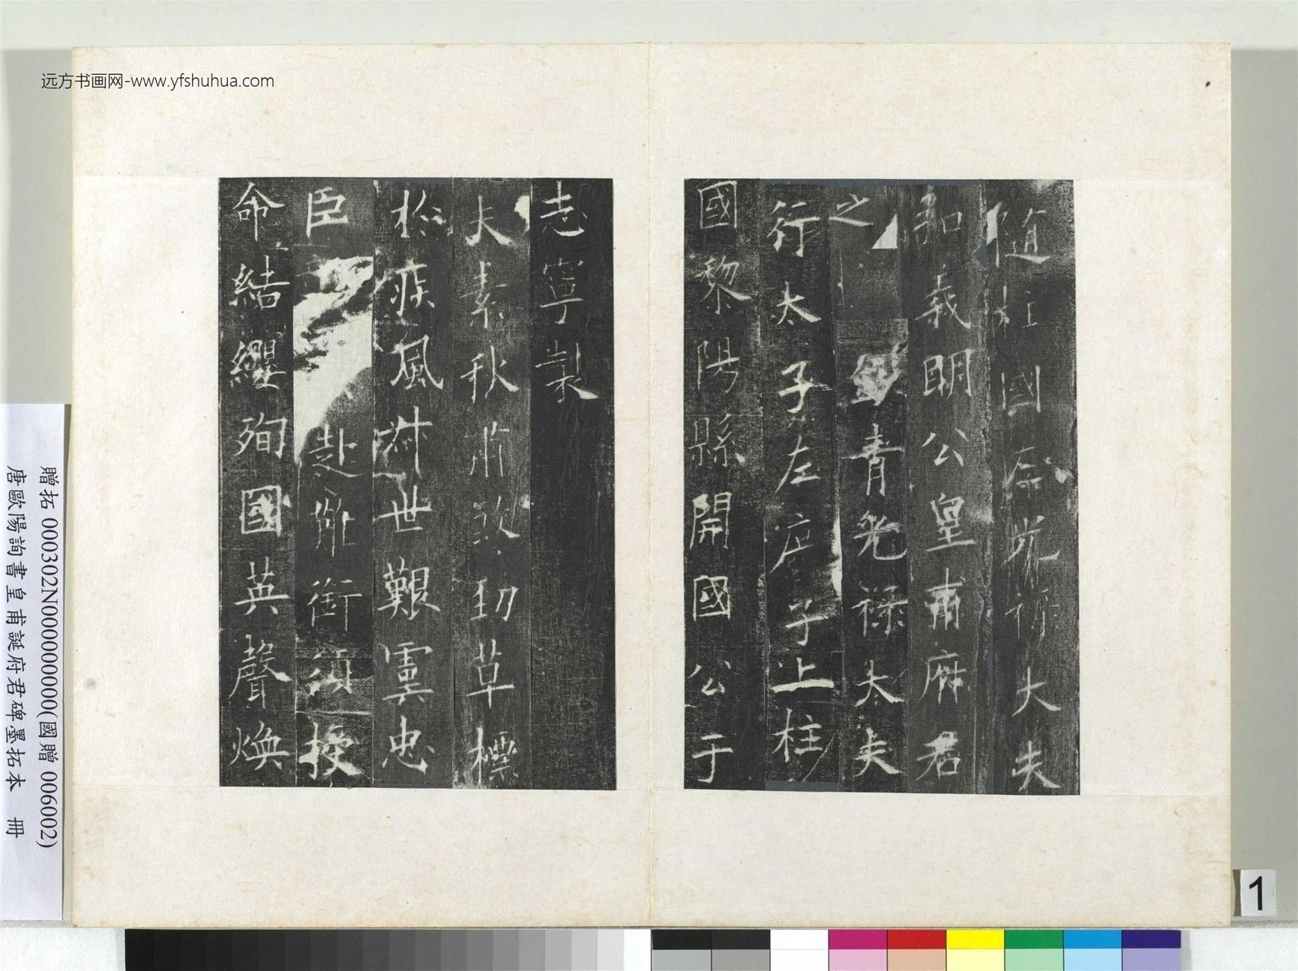 远方书画网-www.yfshuhua.com
隨柱國左光祿大夫
弘義明公皇甫府君
之
銀青光祿大夫
行太子左庶子上柱
國黎陽縣開國公于
志寧製
夫素秋肅煞勁草標
於疾風叔世艱虞忠
臣赴難銜須授
命結纓殉國英聲煥
贈拓 000302N000000000(國贈 006002)
唐歐陽詢書皇甫誕府君碑墨拓本 冊
1